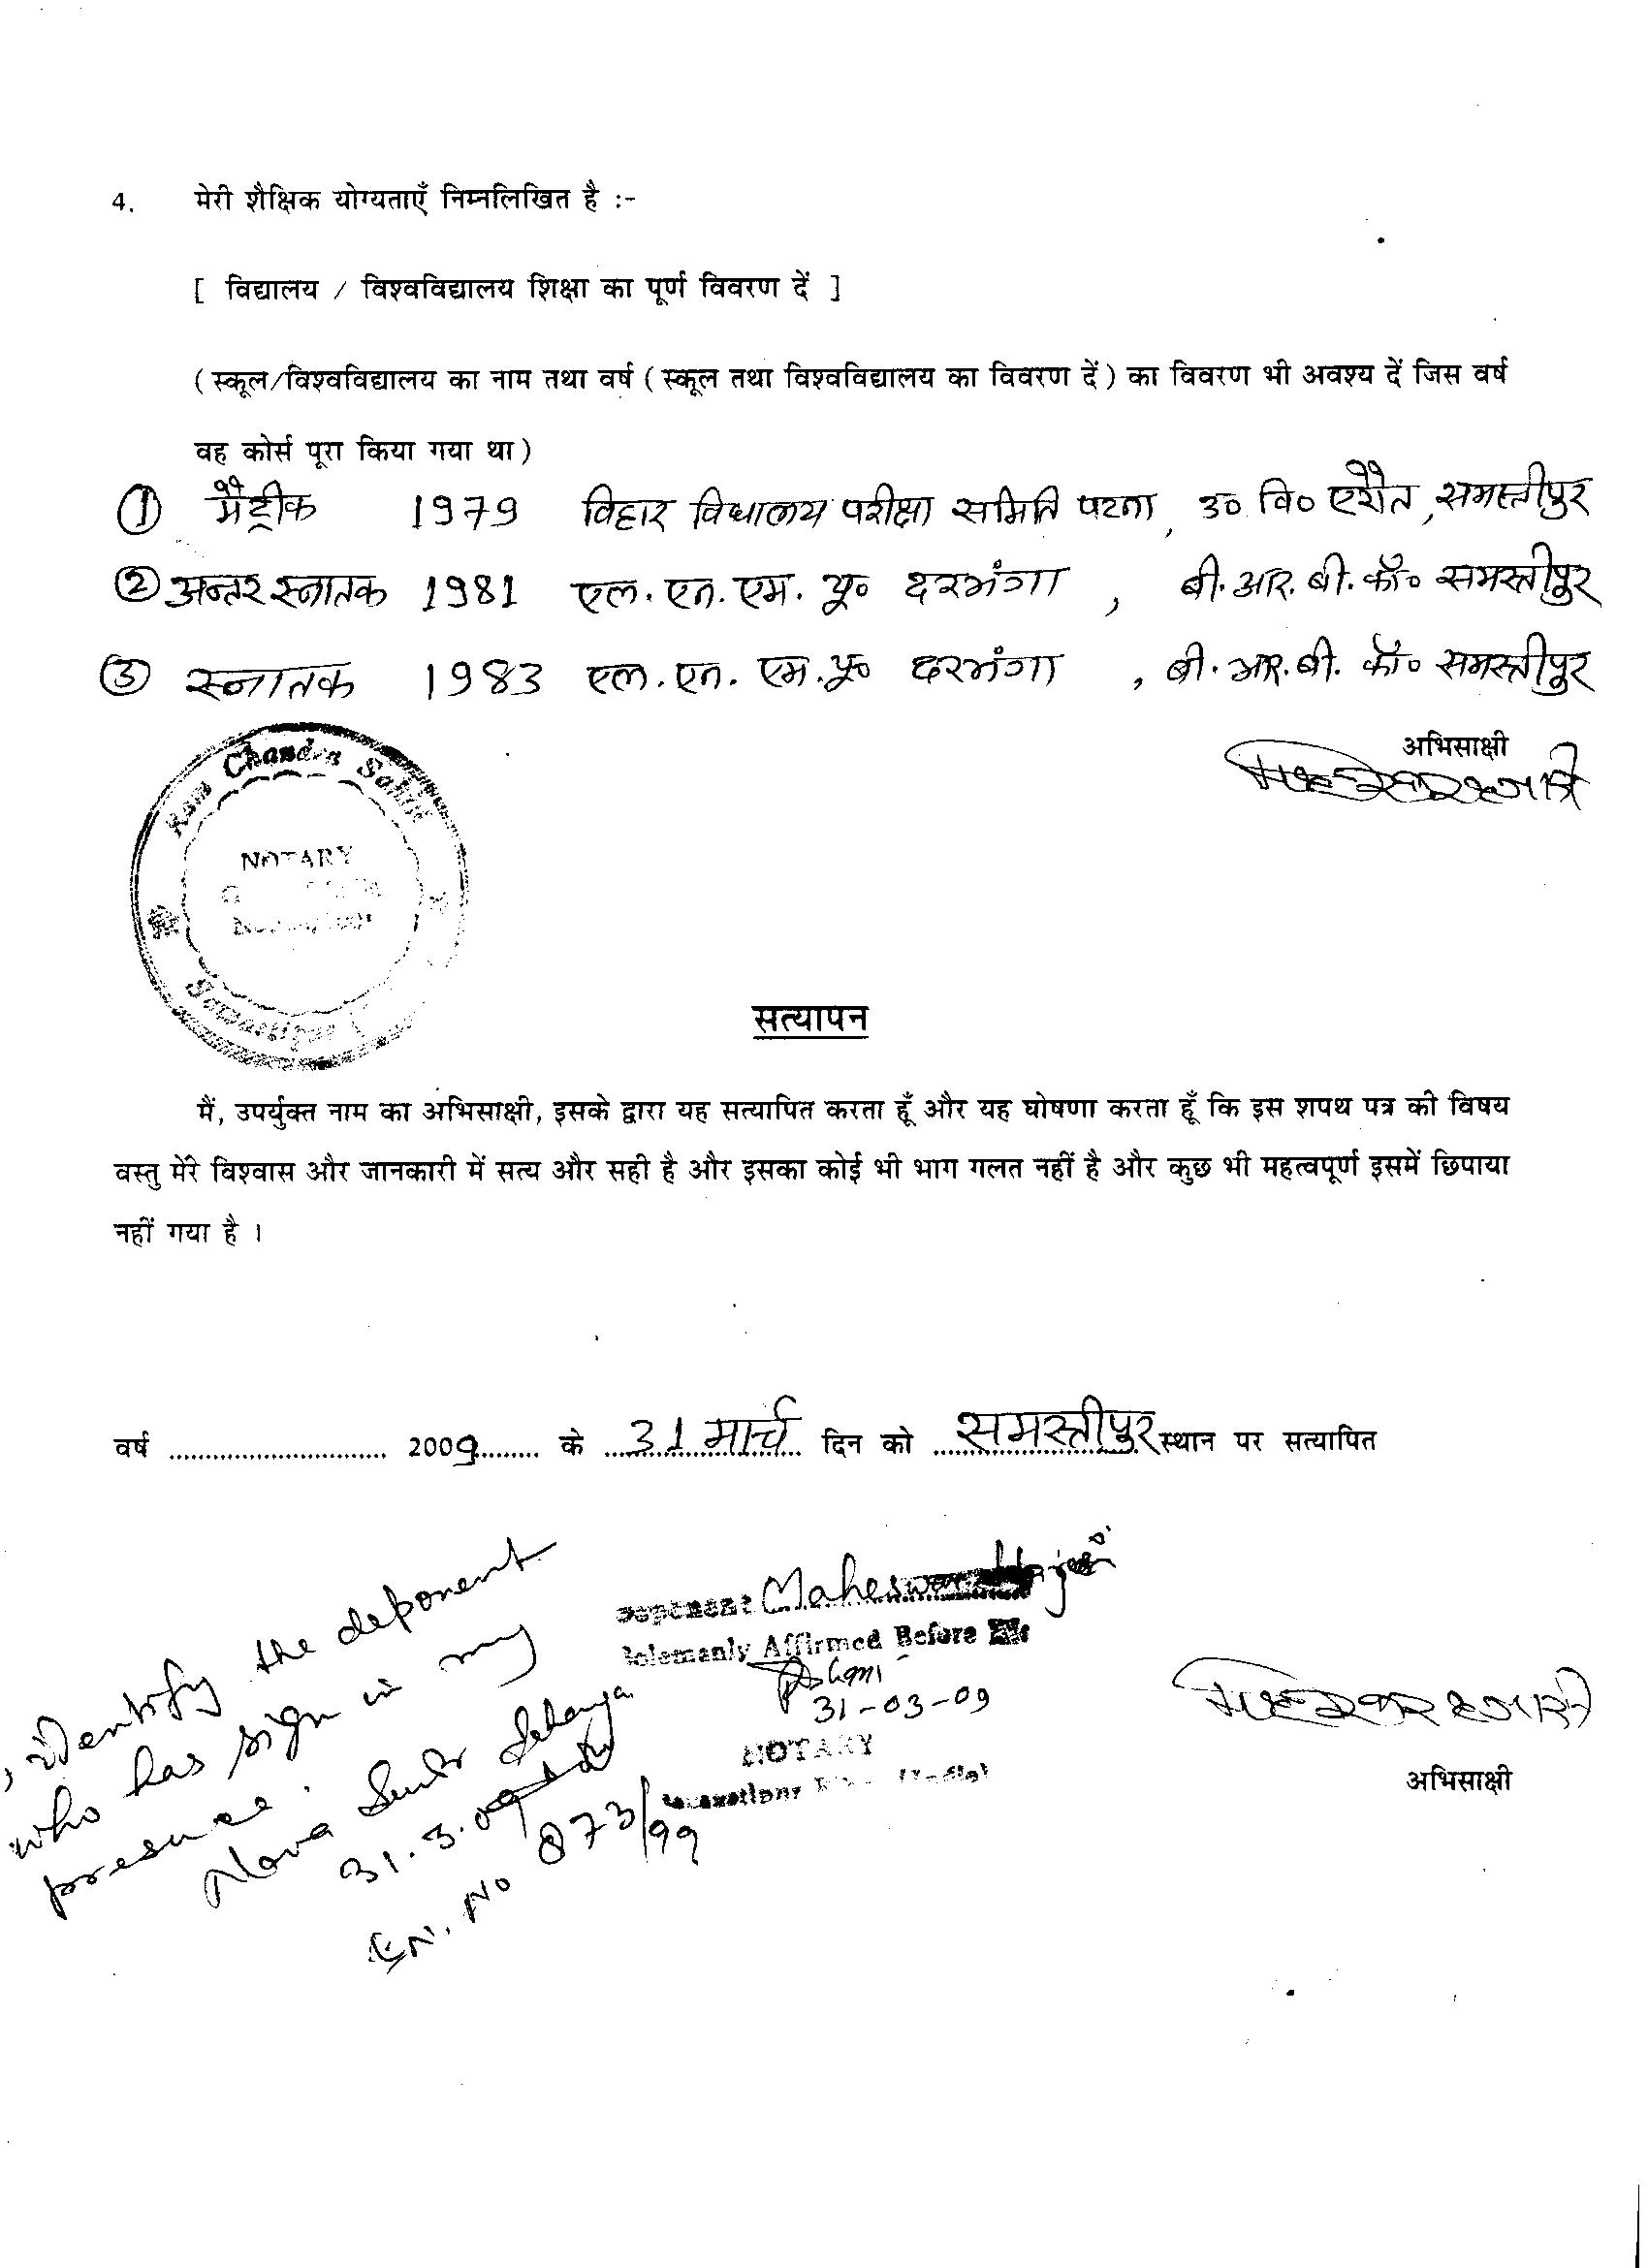 4. मेरी शैक्षिक योग्यताएँ निम्नलिखित है :-
[ विद्यालय / विश्वविद्यालय शिक्षा का पूर्ण विवरण दें ]
(स्कूल/विश्वविद्यालय का नाम तथा वर्ष (स्कूल तथा विश्वविद्यालय का विवरण दें) का विवरण भी अवश्य दें जिस वर्ष
वह कोर्स पूरा किया गया था)
① मैट्रीक 1979 विहार विधालय परीक्षा समिति पटना, उ० वि० एरौत, समस्तीपुर
② अन्तर स्नातक 1981 एल. एन. एम. यू० दरभंगा , बी. आर. बी. कॉ० समस्तीपुर
③ स्नातक 1983 एल. एन. एम. यू० दरभंगा , बी. आर. बी. कॉ० समस्तीपुर
अभिसाक्षी
Ram Chandra
NOTARY
Samastipur
सत्यापन
मैं, उपर्युक्त नाम का अभिसाक्षी, इसके द्वारा यह सत्यापित करता हूँ और यह घोषणा करता हूँ कि इस शपथ पत्र की विषय
वस्तु मेरे विश्वास और जानकारी में सत्य और सही है और इसका कोई भी भाग गलत नहीं है और कुछ भी महत्वपूर्ण इसमें छिपाया
नहीं गया है ।
वर्ष ........................... 2009......... के 31 मार्च दिन को समस्तीपुर स्थान पर सत्यापित
identify the deponent
who has sign in my
presence.
31.3.09
En. No 873/99
Deponent Maheswar
Solemanly Affirmed Before Me
31-03-09
NOTARY
अभिसाक्षी